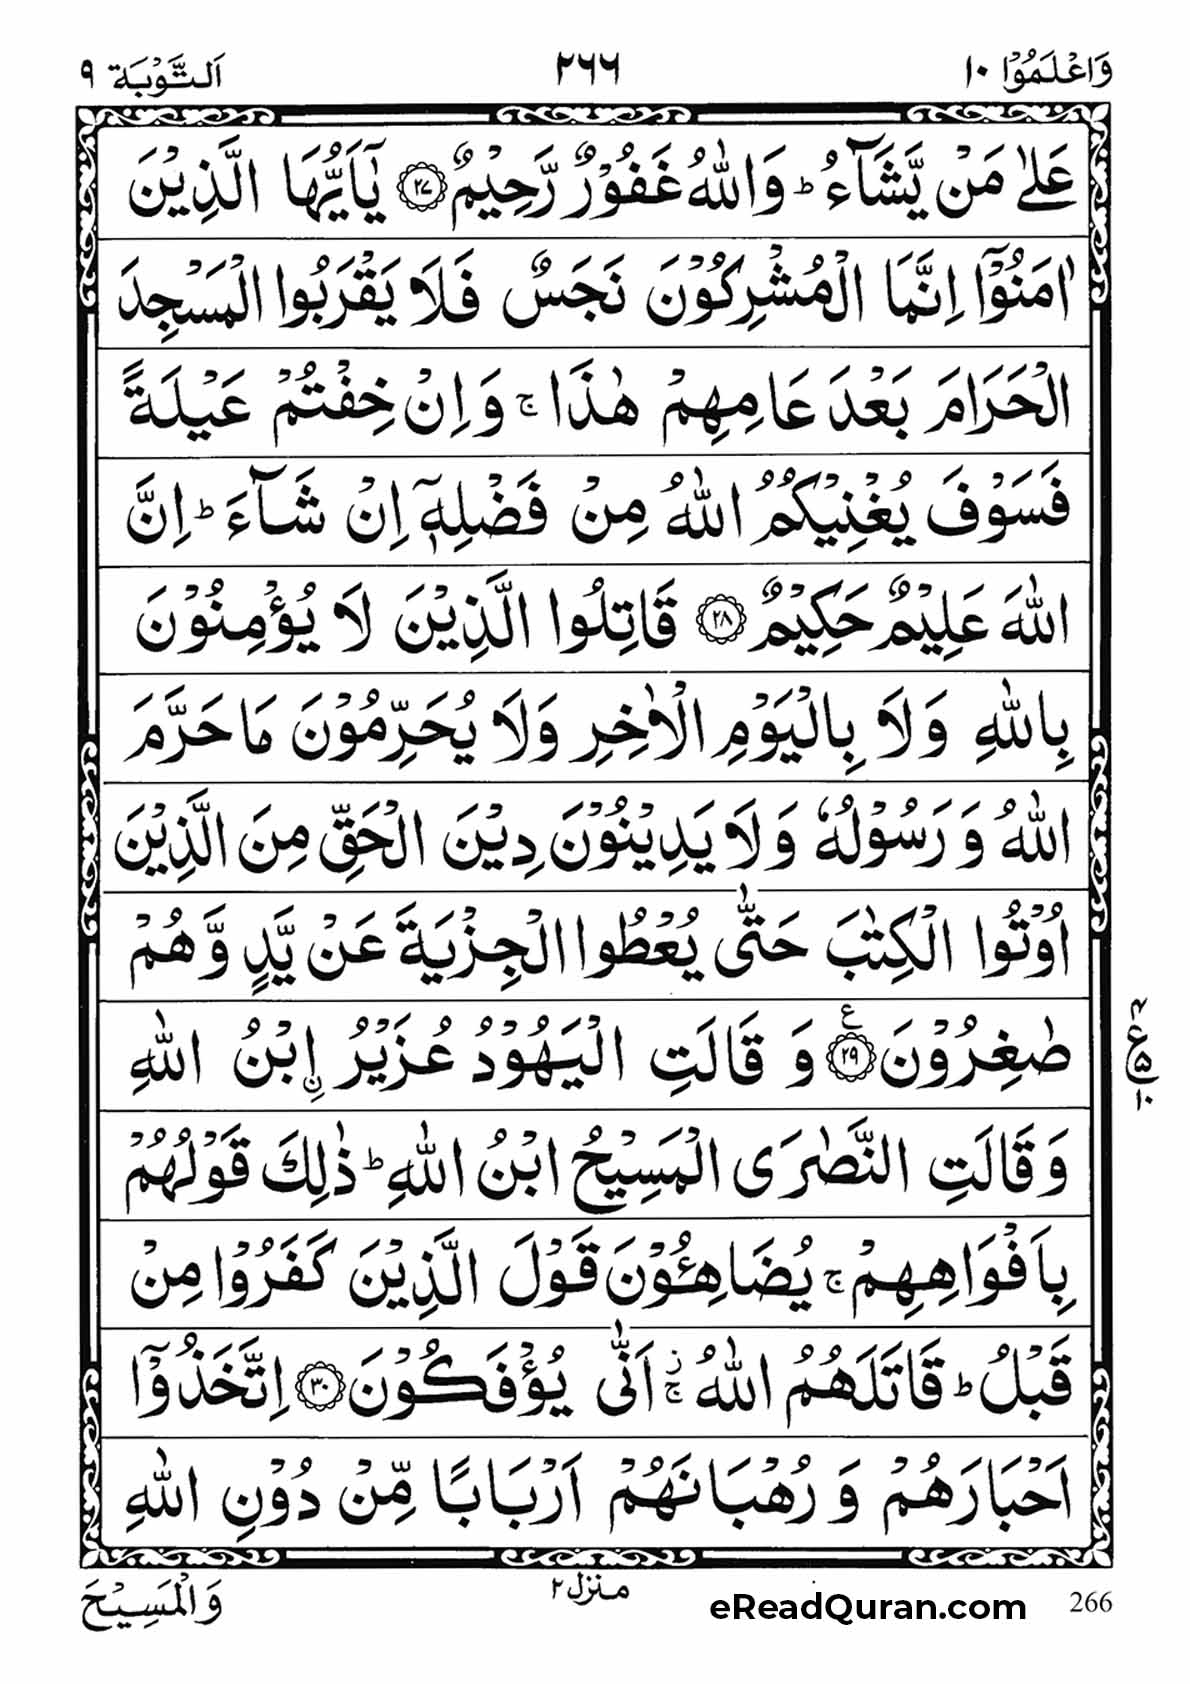 وَاعْلَمُوْۤا ١٠ ٢٦٦ اَلتَّوْبَة ٩
عَلٰی مَنْ یَّشَآءُ ؕ وَاللّٰهُ غَفُوْرٌ رَّحِیْمٌ ﴿٢٧﴾ یٰۤاَیُّهَا الَّذِیْنَ
اٰمَنُوْۤا اِنَّمَا الْمُشْرِكُوْنَ نَجَسٌ فَلَا یَقْرَبُوا الْمَسْجِدَ
الْحَرَامَ بَعْدَ عَامِهِمْ هٰذَا ۚ وَاِنْ خِفْتُمْ عَیْلَةً
فَسَوْفَ یُغْنِیْكُمُ اللّٰهُ مِنْ فَضْلِهٖۤ اِنْ شَآءَ ؕ اِنَّ
اللّٰهَ عَلِیْمٌ حَكِیْمٌ ﴿٢٨﴾ قَاتِلُوا الَّذِیْنَ لَا یُؤْمِنُوْنَ
بِاللّٰهِ وَلَا بِالْیَوْمِ الْاٰخِرِ وَلَا یُحَرِّمُوْنَ مَا حَرَّمَ
اللّٰهُ وَرَسُوْلُهٗ وَلَا یَدِیْنُوْنَ دِیْنَ الْحَقِّ مِنَ الَّذِیْنَ
اُوْتُوا الْكِتٰبَ حَتّٰی یُعْطُوا الْجِزْیَةَ عَنْ یَّدٍ وَّهُمْ
صٰغِرُوْنَ ﴿٢٩﴾ ع وَقَالَتِ الْیَهُوْدُ عُزَیْرُ ِ۟ابْنُ اللّٰهِ
وَقَالَتِ النَّصٰرَی الْمَسِیْحُ ابْنُ اللّٰهِ ؕ ذٰلِكَ قَوْلُهُمْ
بِاَفْوَاهِهِمْ ۚ یُضَاهِـُٔوْنَ قَوْلَ الَّذِیْنَ كَفَرُوْا مِنْ
قَبْلُ ؕ قَاتَلَهُمُ اللّٰهُ ۚ ز اَنّٰی یُؤْفَكُوْنَ ﴿٣٠﴾ اِتَّخَذُوْۤا
اَحْبَارَهُمْ وَرُهْبَانَهُمْ اَرْبَابًا مِّنْ دُوْنِ اللّٰهِ
وَالْمَسِیْحَ منزل ٢ eReadQuran.com 266